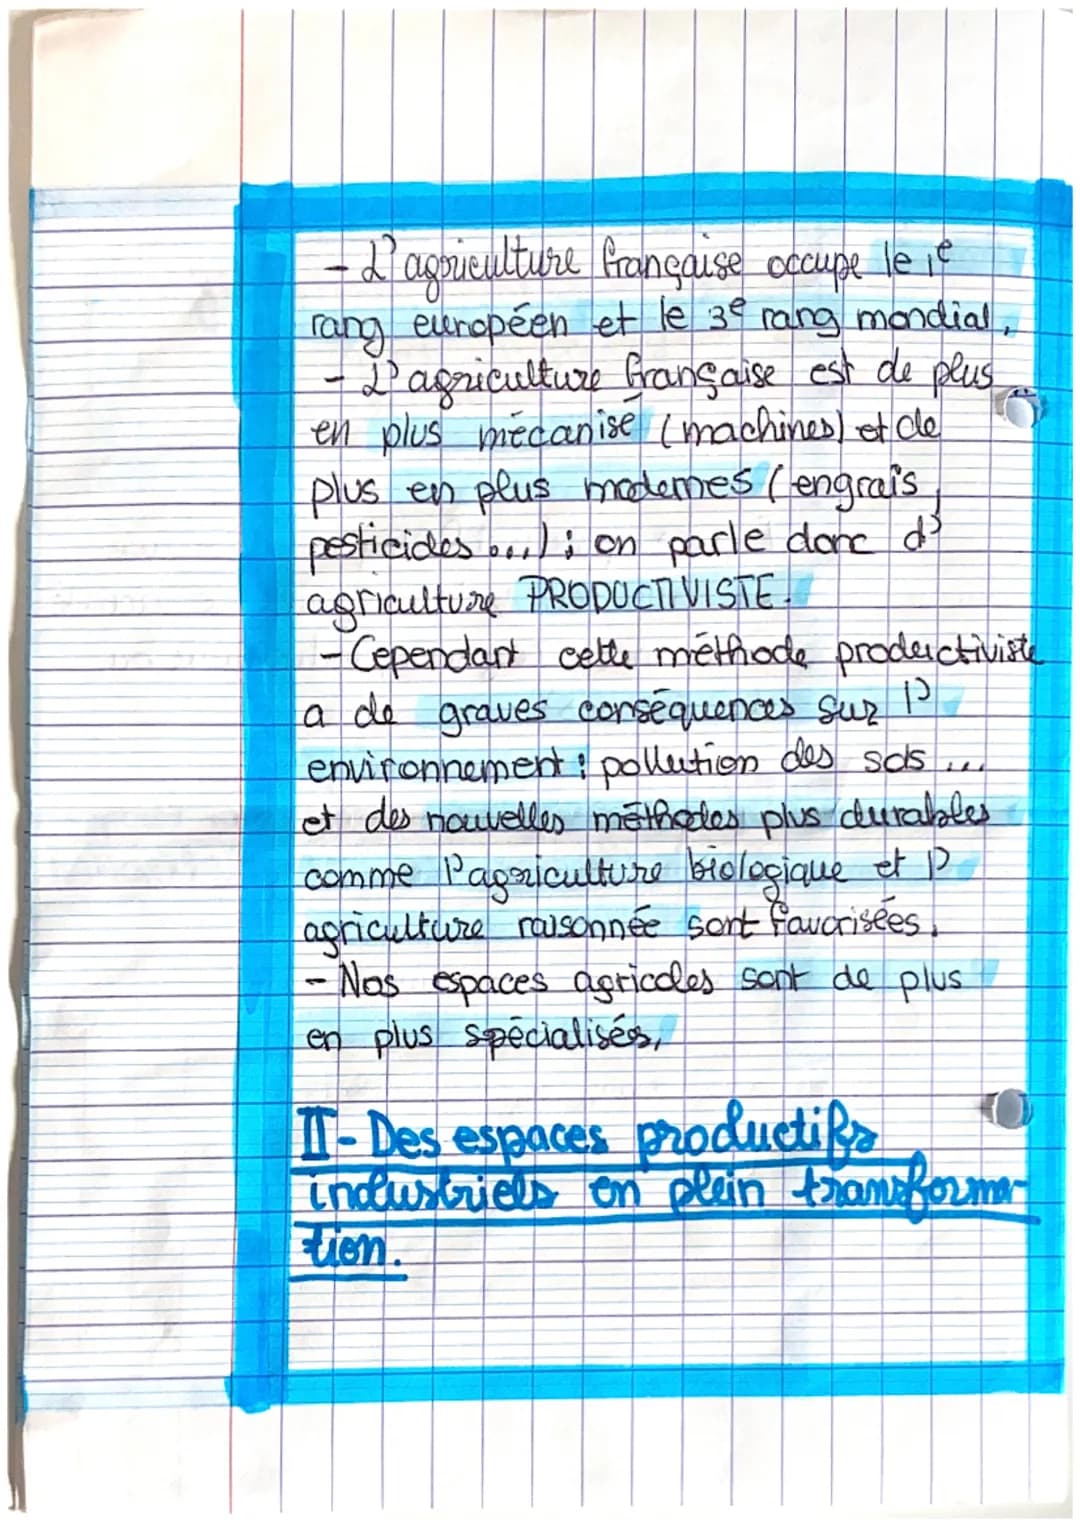 - L'agriculture française occupe le 1e
rang européen et le 3e rang mondial.
- L'agriculture française est de plus
en plus mécanisé (machines) et de
plus en plus modernes (engrais,
pesticides ...) ; on parle donc d'
agriculture PRODUCTIVISTE.
- Cependant cette méthode productiviste
a de graves conséquences sur l'
environnement : pollution des sols ...
et des nouvelles méthodes plus durables
comme l'agriculture biologique et l'
agriculture raisonnée sont favorisées.
- Nos espaces agricoles sont de plus
en plus spécialisés,
II- Des espaces productifs
industriels en plein transforma-
tion.